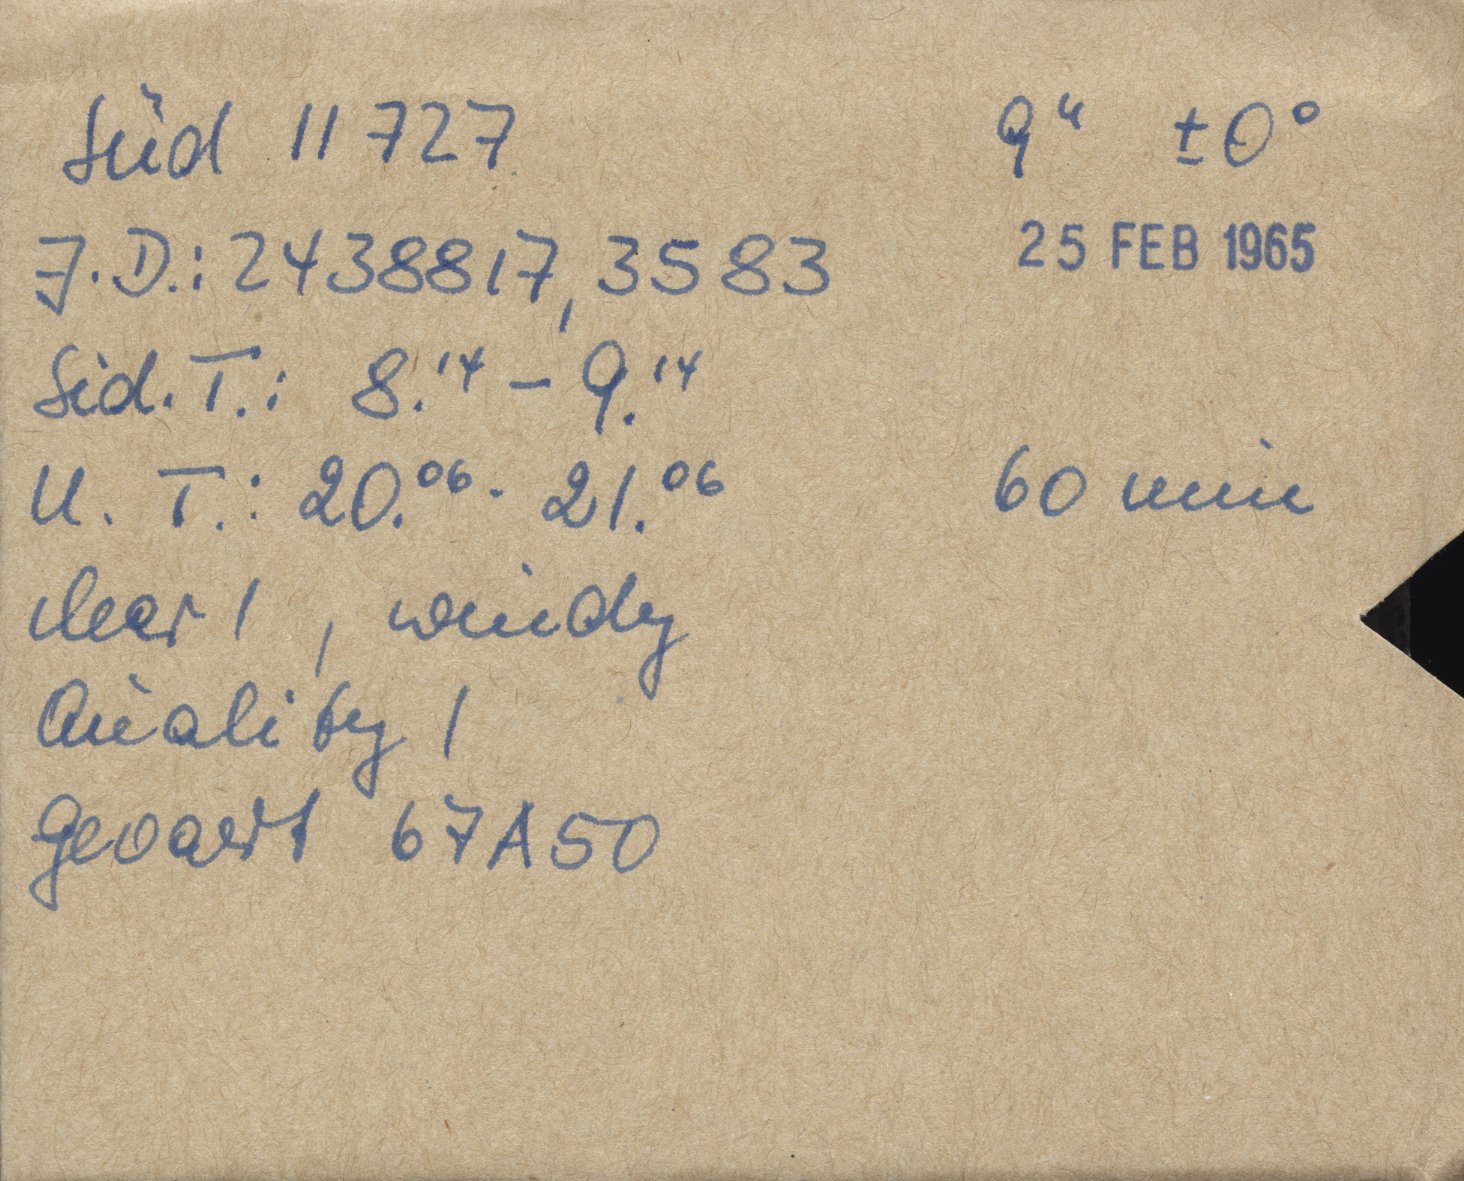 Süd 11727 9ʰ ±0°
25 FEB 1965
J.D.: 2438817,3583
Sid. T.: 8.¹⁴ – 9.¹⁴
U. T.: 20.⁰⁶ - 21.⁰⁶ 60 min
clear 1, windy
Quality 1
Gevaert 67A50